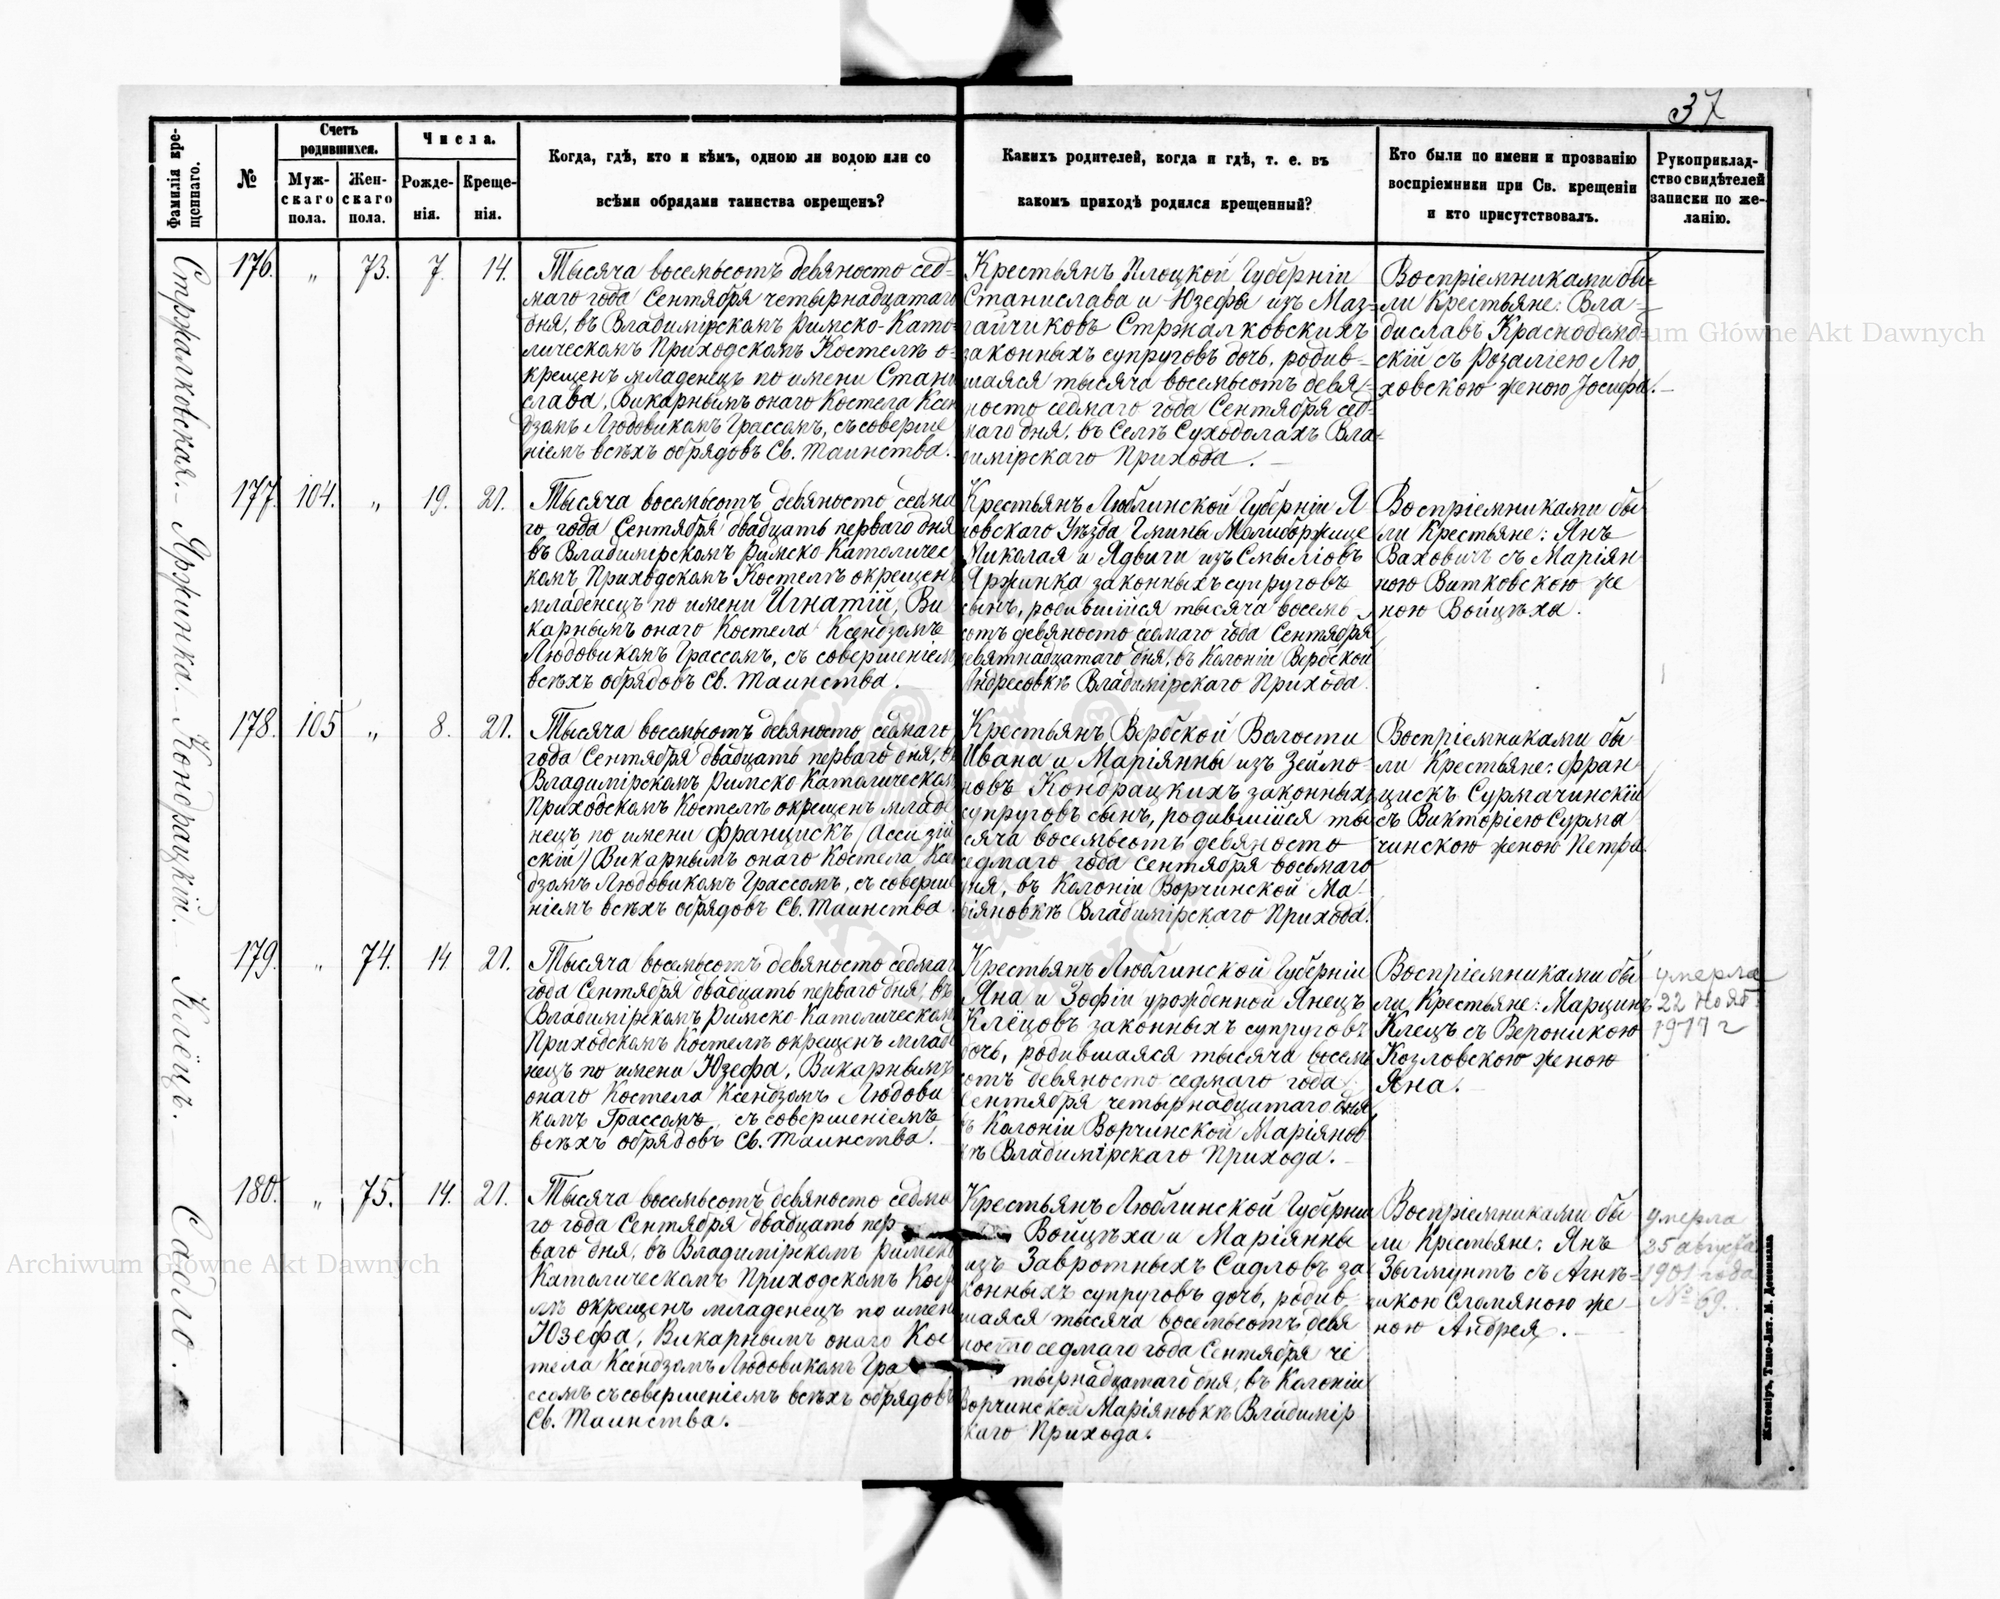 37
Фамилія кре-
щеннаго.
№
Счетъ
родившихся.
Муж-
скаго
пола.
Жен-
скаго
пола.
Числа.
Рожде-
нія.
Креще-
нія.
Когда, гдѣ, кто и кѣмъ, одною ли водою или со
всѣми обрядами таинства окрещенъ?
Какихъ родителей, когда и гдѣ, т. е. въ
какомъ приходѣ родился крещенный?
Кто были по имени и прозванію
воспріемники при Св. крещеніи
и кто присутствовалъ.
Рукоприклад-
ство свидѣтелей
записки по же-
ланію.
Стржалковская.
176. „ 73. 7. 14.
Тысяча восемьсотъ девяносто сед-
маго года Сентября четырнадцатаго
дня, въ Владимірскомъ Римско-Като-
лическомъ Приходскомъ Костелѣ о-
крещенъ младенецъ по имени Стани
слава, Викарнымъ онаго Костела Ксен
дзомъ Людовикомъ Грассомъ, съ соверше
ніемъ всѣхъ обрядовъ Св. Таинства.
Крестьянъ Плоцкой Губерніи
Станислава и Юзефы изъ Маг-
гайчиковъ Стржалковскихъ
законныхъ супруговъ дочь, родив-
шаяся тысяча восемьсотъ девя-
носто седмаго года Сентября сед-
маго дня, въ Селѣ Суходолахъ Вла-
димірскаго Прихода.
Воспріемниками бы-
ли Крестьяне: Вла-
диславъ Краснодемб-
скій съ Розаліею Лю
ховскою женою Іосифа.
Яржинка.
177. 104. „ 19. 21.
Тысяча восемьсотъ девяносто седма
го года Сентября двадцать перваго дня
въ Владимірскомъ Римско Католичес
комъ Приходскомъ Костелѣ окрещенъ
младенецъ по имени Игнатій, Ви
карнымъ онаго Костела Ксендзомъ
Людовикомъ Грассомъ, съ совершеніемъ
всѣхъ обрядовъ Св. Таинства.
Крестьянъ Люблинской Губерніи Я
новскаго Уѣзда Гмины Модлиборжице
Николая и Ядвиги изъ Смыліовъ
Яржинка законныхъ супруговъ
сынъ, родившійся тысяча восемь
сотъ девяносто седмаго года Сентября
девятнадцатаго дня, въ Колоніи Вербской
Андресовкѣ Владимірскаго Прихода.
Воспріемниками бы
ли Крестьяне: Янъ
Ваховичъ съ Маріян
ною Витковскою же
ною Войцѣха.
Кондрацкій.
178. 105 „ 8. 21.
Тысяча восемьсотъ девяносто седмаго
года Сентября двадцать перваго дня, въ
Владимірскомъ Римско Католическомъ
Приходскомъ Костелѣ окрещенъ младе
нецъ по имени Францискъ (Ассизій
скій) Викарнымъ онаго Костела Ксен
дзомъ Людовикомъ Грассомъ, съ соверше
ніемъ всѣхъ обрядовъ Св. Таинства
Крестьянъ Вербской Волости
Ивана и Маріянны изъ Зеймо-
новъ Кондрацкихъ законныхъ
супруговъ сынъ, родившійся ты
сяча восемьсотъ девяносто
седмаго года Сентября восьмаго
дня, въ Колоніи Ворчинской Ма-
ріяновкѣ Владимірскаго Прихода.
Воспріемниками бы
ли Крестьяне: Фран
цискъ Сурмачинскій
съ Викторіею Сурма
чинскою женою Петра.
Клёцъ.
179. „ 74. 14. 21.
Тысяча восемьсотъ девяносто седмаго
года Сентября двадцать перваго дня, въ
Владимірскомъ Римско-Католическомъ
Приходскомъ Костелѣ окрещенъ младе
нецъ по имени Юзефа, Викарнымъ
онаго Костела Ксендзомъ Людови
комъ Грассомъ, съ совершеніемъ
всѣхъ обрядовъ Св. Таинства.
Крестьянъ Люблинской Губерніи
Яна и Зофіи урожденной Янецъ
Клёцовъ законныхъ супруговъ
дочь, родившаяся тысяча восемь
сотъ девяносто седмаго года
Сентября четырнадцатаго дня
въ Колоніи Ворчинской Маріянов
кѣ Владимірскаго Прихода.
Воспріемниками бы
ли Крестьяне: Марцинъ
Клецъ съ Вероникою
Козловскою женою
Яна.
умерла
22 Нояб
1911 г
Садло.
180. „ 75. 14. 21.
Тысяча восемьсотъ девяносто седма
го года Сентября двадцать пер
ваго дня, въ Владимірскомъ Римско
Католическомъ Приходскомъ Косте
лѣ окрещенъ младенецъ по имени
Юзефа, Викарнымъ онаго Кос
тела Ксендзомъ Людовикомъ Гра
ссомъ съ совершеніемъ всѣхъ обрядовъ
Св. Таинства.
Крестьянъ Люблинской Губерніи
Войцѣха и Маріянны
изъ Завротныхъ Садловъ за
конныхъ супруговъ дочь, родив-
шаяся тысяча восемьсотъ девя
носто седмаго года Сентября че
тырнадцатаго дня, въ Колоніи
Ворчинской Маріяновкѣ Владимір
скаго Прихода.
Воспріемниками бы
ли Крестьяне: Янъ
Зыгмунтъ съ Агнѣ-
шкою Сломяною же-
ною Андрея.
умерла
25 августа
1901 года
№ 69.
Житоміръ, Типо-Лит. М. Дененмана
Archiwum Główne Akt Dawnych
Archiwum Główne Akt Dawnych